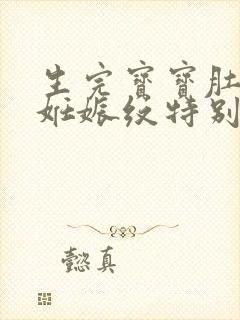 生完寶寶肚
妊娠纹特别
懿真